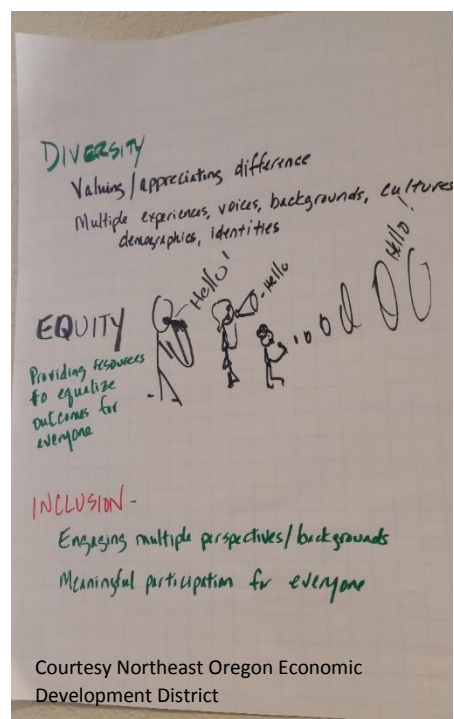 DIVERSITY
Valuing/appreciating difference
Multiple experiences, voices, backgrounds, cultures
demographics, identities
Hello!
Hello
Hello!
EQUITY
Providing resources
to equalize
outcomes for
everyone
INCLUSION-
Engaging multiple perspectives/backgrounds
Meaningful participation for everyone
Courtesy Northeast Oregon Economic
Development District